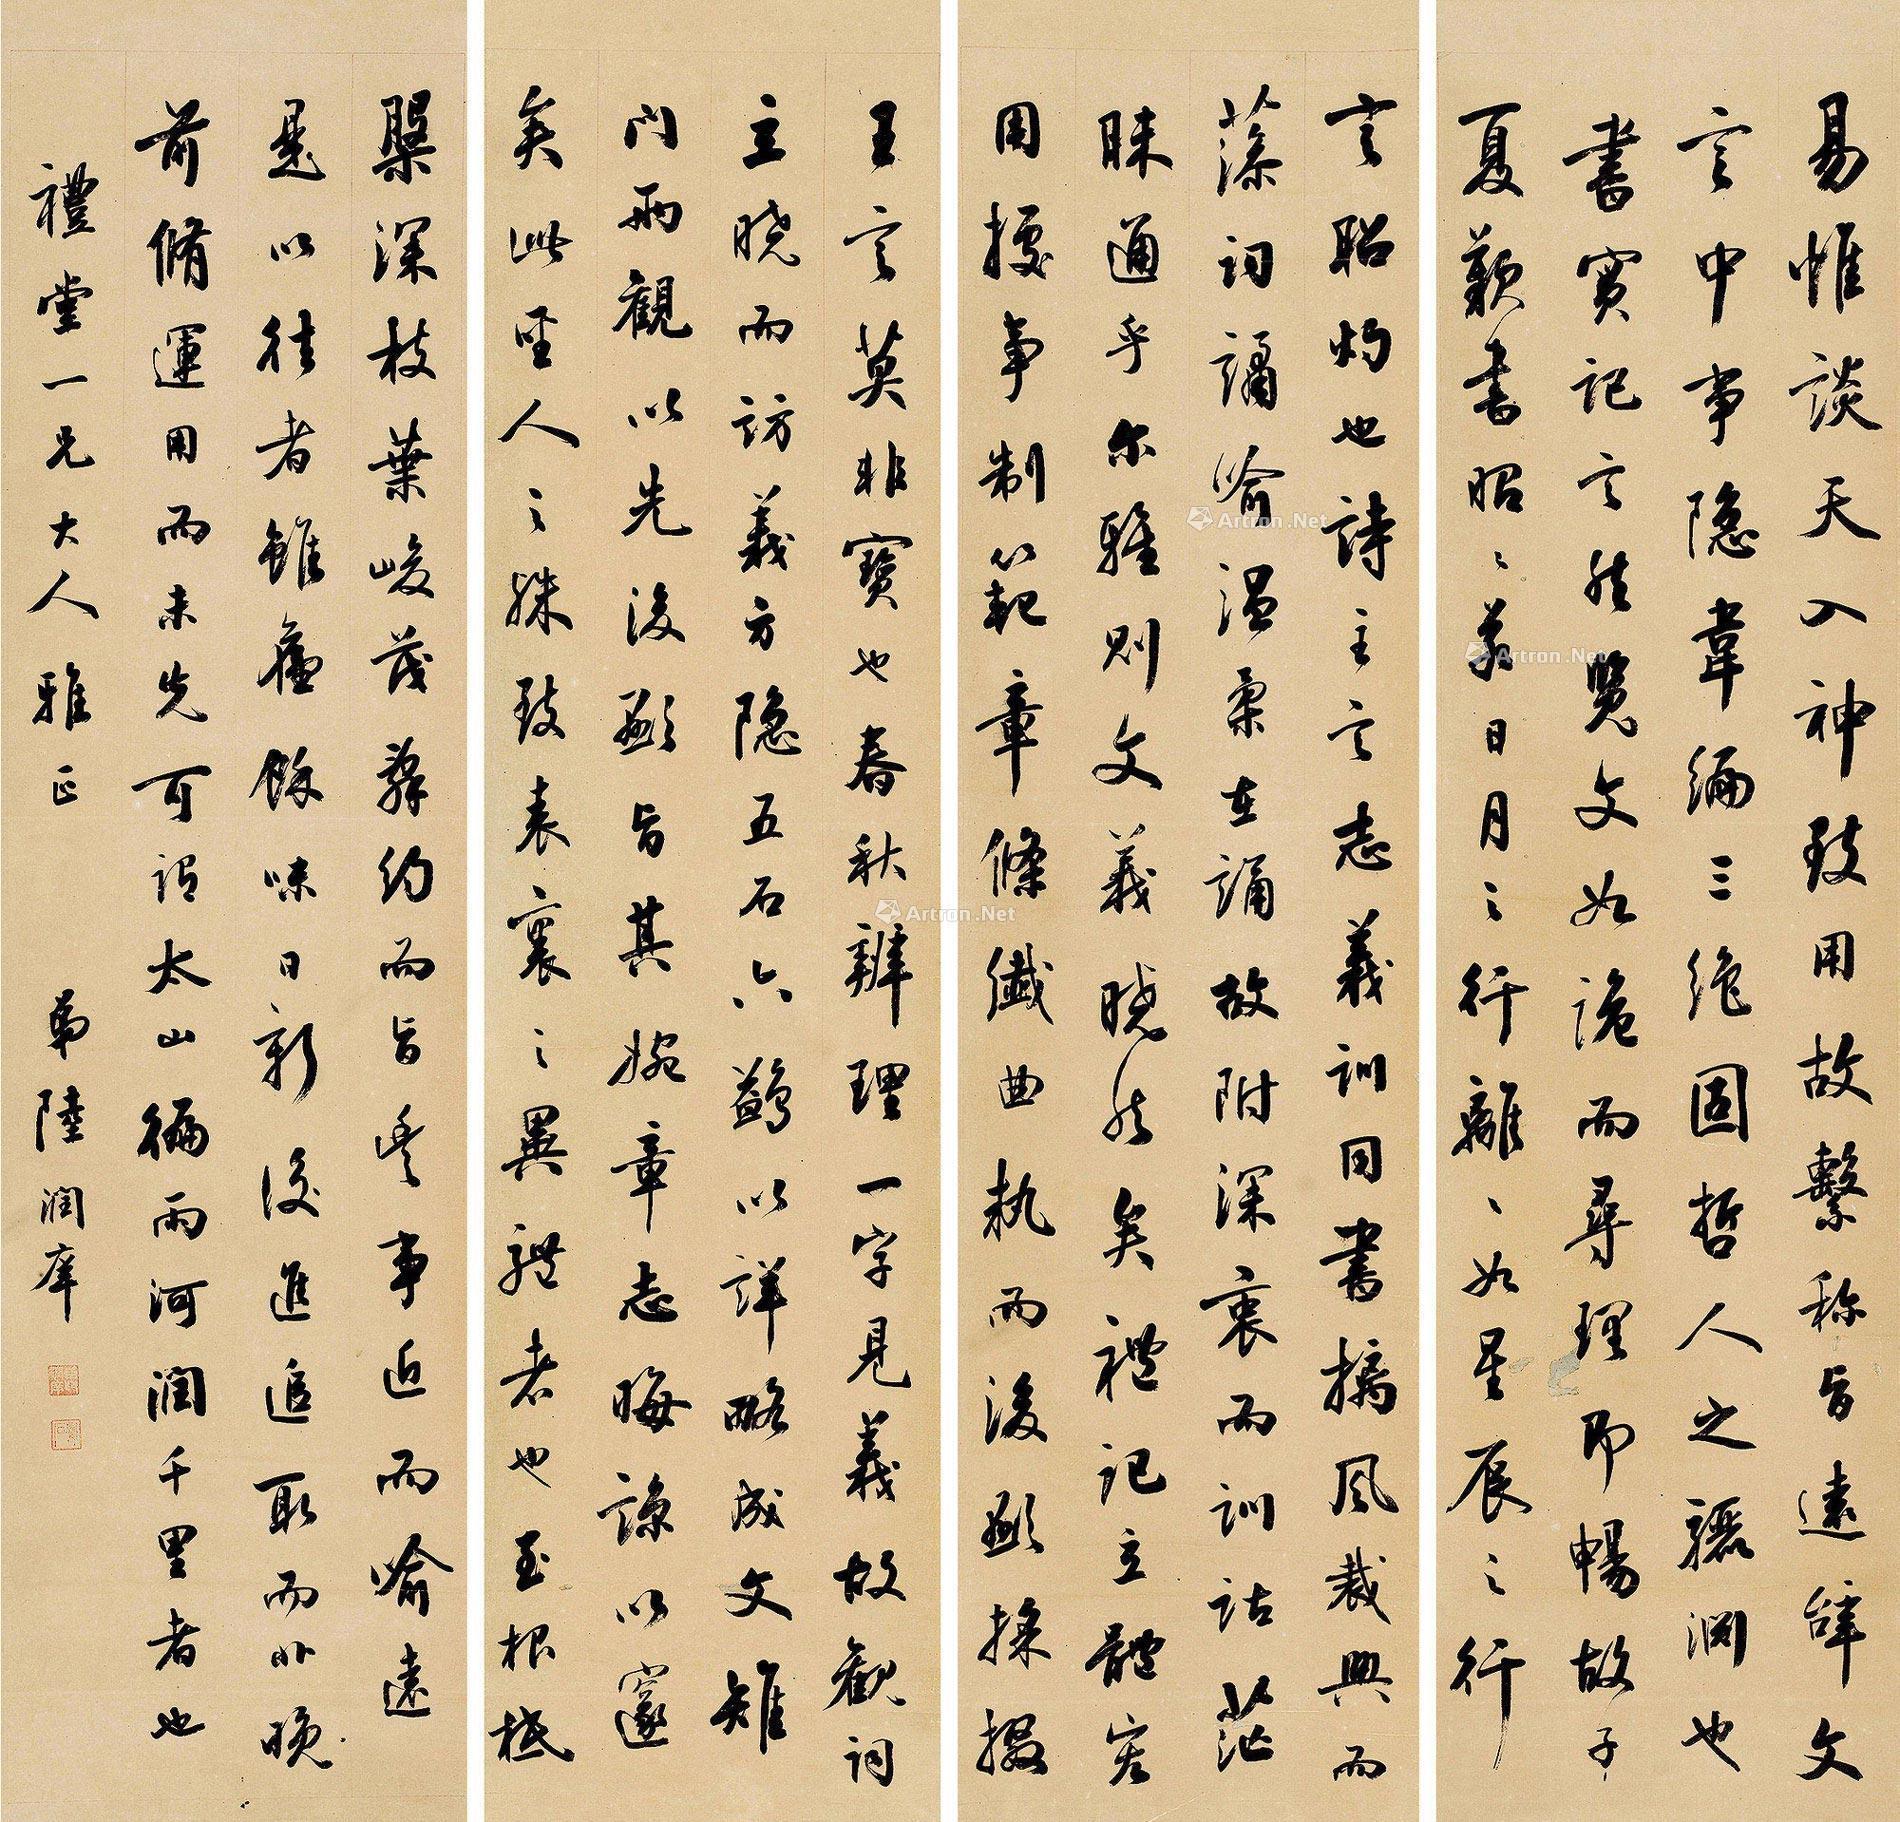 易惟談天入神致用故繫称旨遠辭文
言中事隐韋編三絶固哲人之驪渊也
書實記言然覽文如詭而尋理即暢故子
夏歎書昭〻若日月之行離〻如星辰之行
言昭灼也詩主言志義訓同書摛風裁興而
藻詞譎喻温柔在誦故附深衷而訓詁茫
昧通乎尔雅則文義曉然矣禮記立體宏
用據事制範章條纖曲執而後顯採掇
王言莫非寶也春秋辨理一字見義故觀詞
立曉而訪義方隐五石六鷁以詳略成文雉
門兩觀以先後顯旨其婉章志晦諒以邃
矣此聖人之殊致表裏之異體者也至根柢
槃深枝葉峻茂辭約而旨豐事近而喻遠
是以往者雖舊餘味日新後進追取而非晚
前脩運用而未先可謂太山徧雨河潤千里者也
禮堂一兄大人雅正 弟陸潤庠
Artron.Net
Artron.Net
Artron.Net